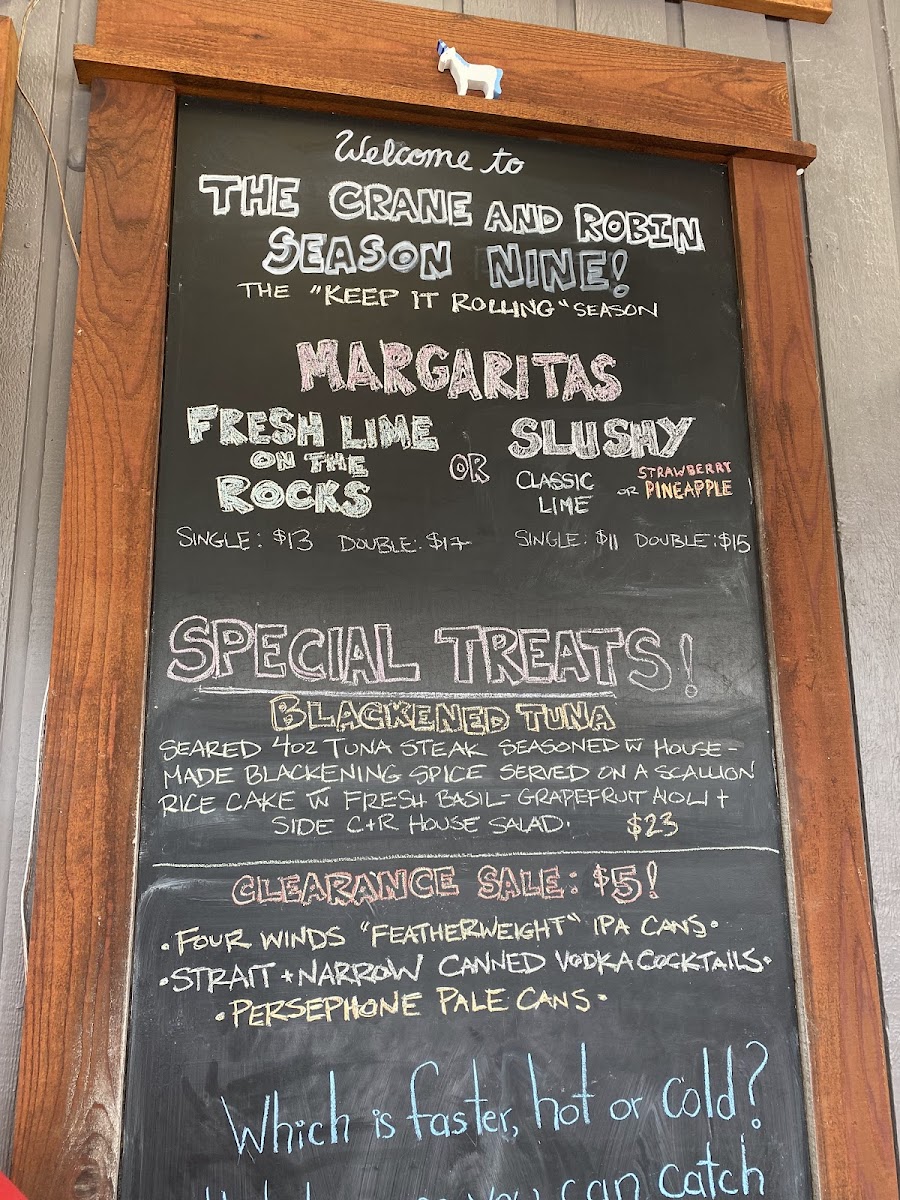 Welcome to
THE CRANE AND ROBIN
SEASON NINE!
THE "KEEP IT ROLLING" SEASON
MARGARITAS
FRESH LIME
ON THE
ROCKS
OR
SLUSHY
CLASSIC
LIME
OR
STRAWBERRY
PINEAPPLE
SINGLE: $13 DOUBLE: $17
SINGLE: $11 DOUBLE: $15
SPECIAL TREATS!
BLACKENED TUNA
SEARED 4oz TUNA STEAK SEASONED w HOUSE-
MADE BLACKENING SPICE SERVED ON A SCALLION
RICE CAKE w FRESH BASIL-GRAPEFRUIT AIOLI +
SIDE C+R HOUSE SALAD. $23
CLEARANCE SALE: $5!
• FOUR WINDS "FEATHERWEIGHT" IPA CANS •
• STRAIT + NARROW CANNED VODKA COCKTAILS •
• PERSEPHONE PALE CANS •
Which is faster, hot or cold?
you can catch